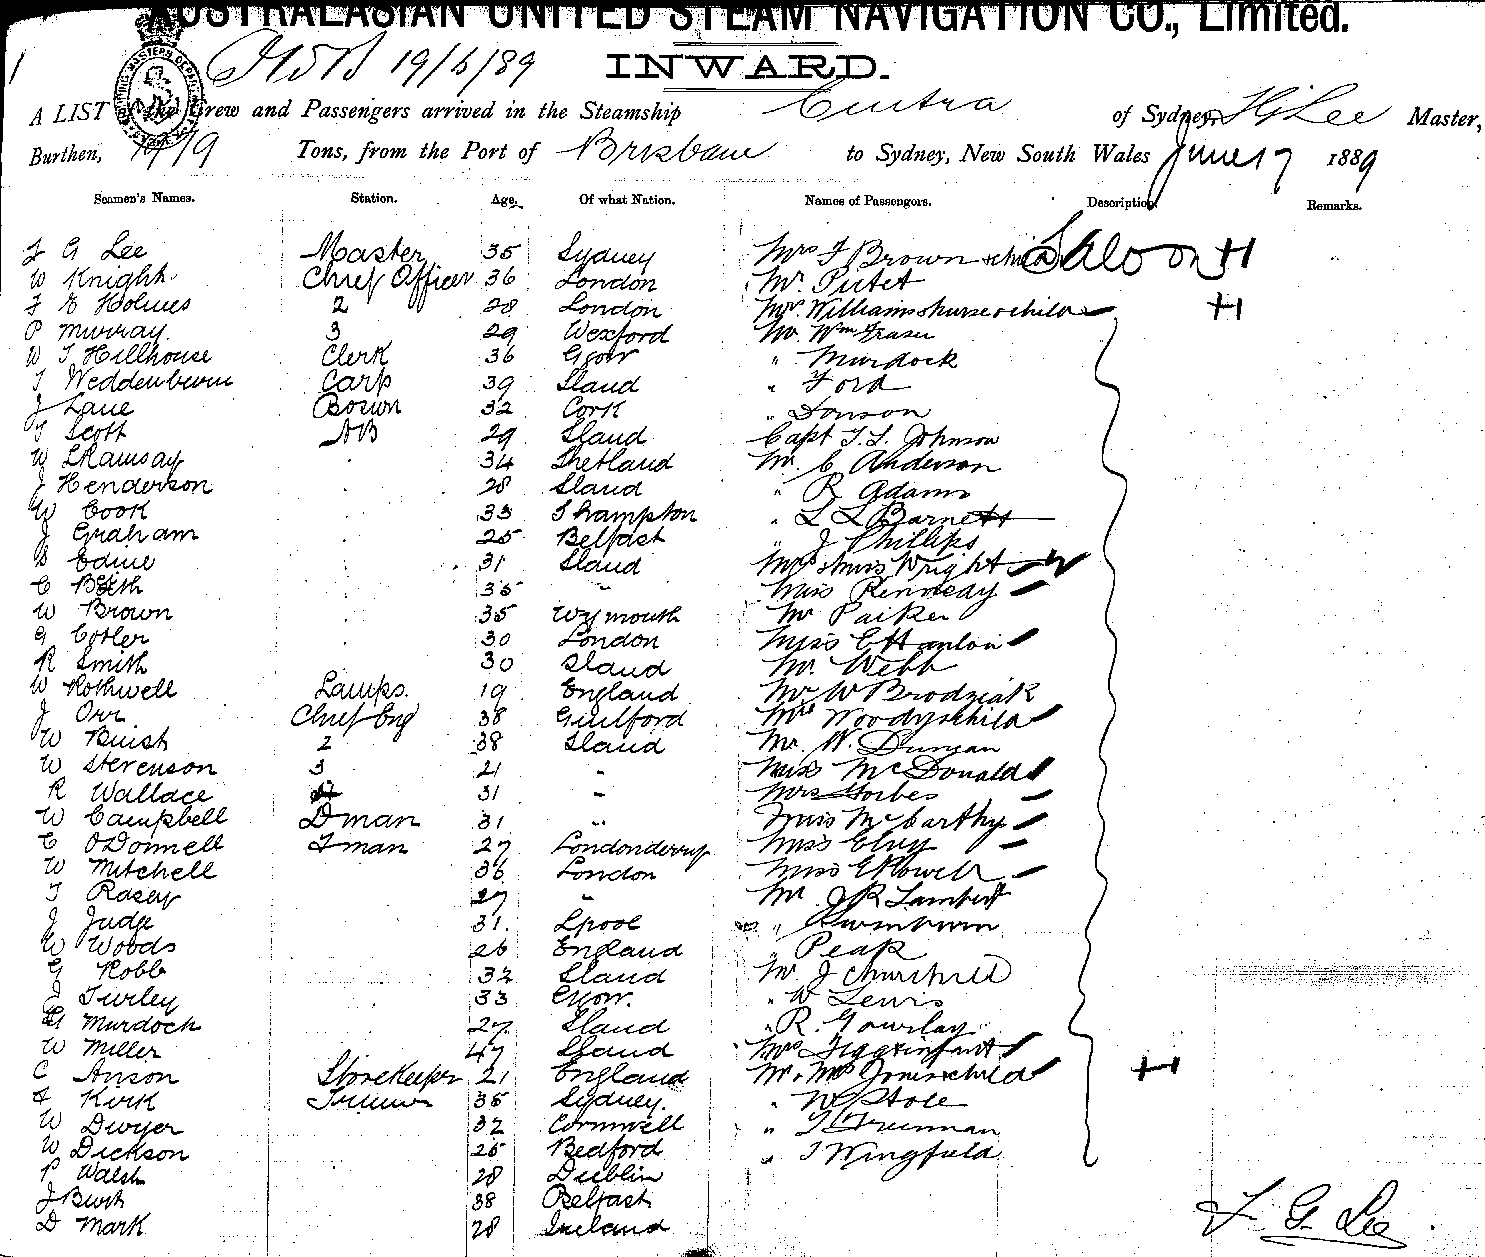 AUSTRALASIAN UNITED STEAM NAVIGATION CO., Limited.
19/6/89 INWARD.
A LIST Crew and Passengers arrived in the Steamship Cintra of Sydney, Lee Master,
Burthen, Tons, from the Port of Brisbane to Sydney, New South Wales June 17 1889
Seamen's Names. Station. Age. Of what Nation. Names of Passengers. Description. Remarks.
F G Lee Master 35 Sydney Mrs F Brown & child Saloon H
W Knight Chief Officer 36 London Mr
F E Holmes 2 28 London Mrs Williams nurse & child H
P Murray 3 29 Wexford Mr Wm Fraser
W T Hillhouse Clerk 36 Gow " Murdock
T Weddenburn Carp 39 Sland " Ford
J Lane Bosun 32 Cork "
T Scott AB 29 Sland Capt T. S. Johnson
W Ramsay 34 Shetland Mr. C Anderson
J Henderson 28 Sland " R Adams
W Cook 33 Shampton " L L Barnett
J Graham 25 Belfast " J Phillips
Edine 31 Sland Mrs & Miss Wright
C 35 " Miss Kennedy
W Brown 35 Wymouth Mr Parker
G Cotler 30 London Miss E Hanlon
R Smith 30 Sland Mr. Webb
W Rothwell Lamps. 19 England Mr W Brodziak
J Orr Chief Eng 38 Guilford Mrs Woody & child
W Buist 2 38 Sland Mr. W. Duncan
W Stevenson 3 21 " Miss McDonald
R Wallace 31 " Mrs Forbes
W Campbell Dman 31 " Miss McCarthy
C O'Donnell Fman 27 Londonderry Miss
W Mitchell 36 London Miss E Powell
T Rasey 27 " Mr J R Lambert
J Judge 31. Lpool " Swinburn
W Woods 26 England " Peak
G Robb 32 Sland Mr J Churchill
J Turley 33 Gow. " W Lewis
G Murdoch 27 Sland " R. Gourlay
W Miller 47 Sland Mrs
C Anson Storekeeper 21 England Mr. Mrs Jones & child H
F Kirk Trimmer 35 Sydney. " W Stole
W Dwyer 32 Cornwell " T Freeman
W Dickson 25 Bedford " T Wingfield
P Walsh 28 Dublin
J Burch 38 Belfast
D Mark 28 Ireland
F. G. Lee